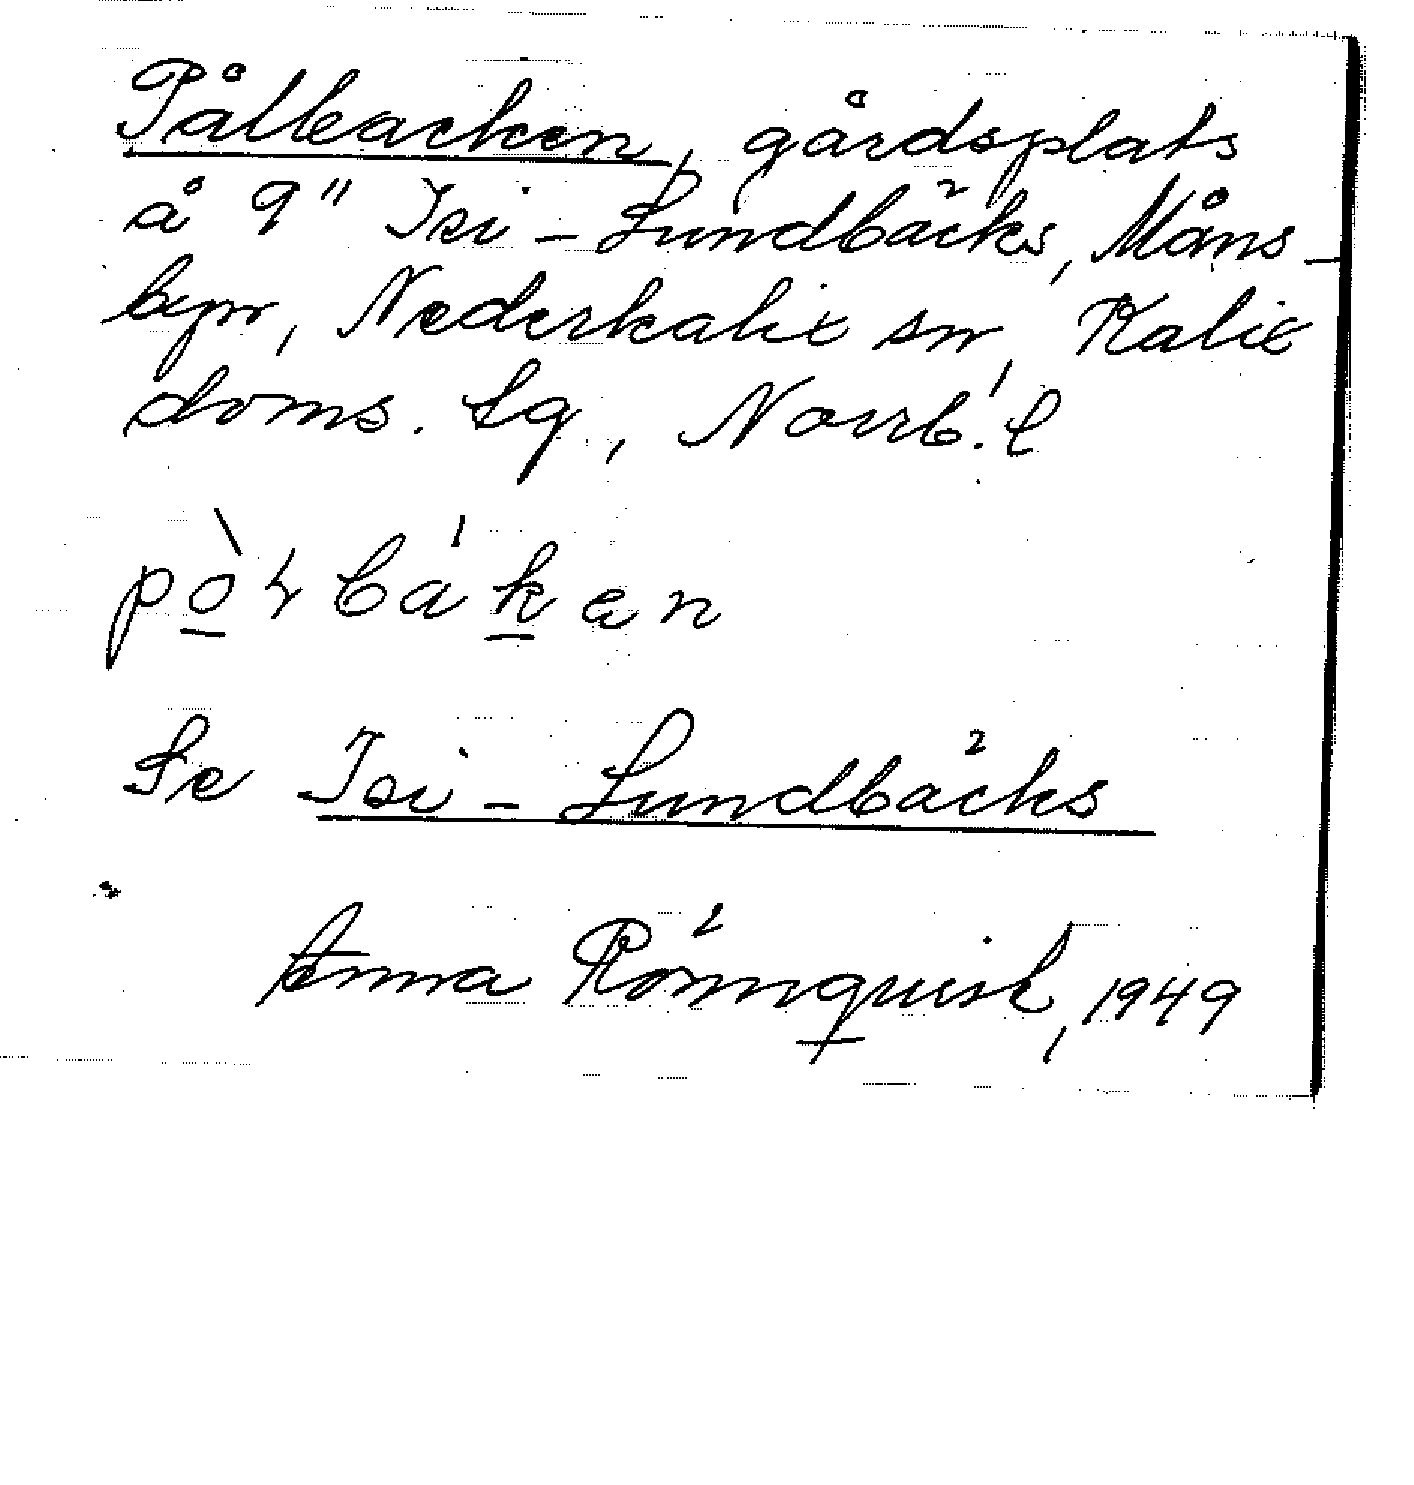 Pålbacken, gårdsplats
å 9" Isi-Lundbäcks, Måns-
byn, Nederkalix sn, Kalix
doms. lg, Norrb:l
Se Isi-Lundbäcks
Anna Rönnquist, 1949